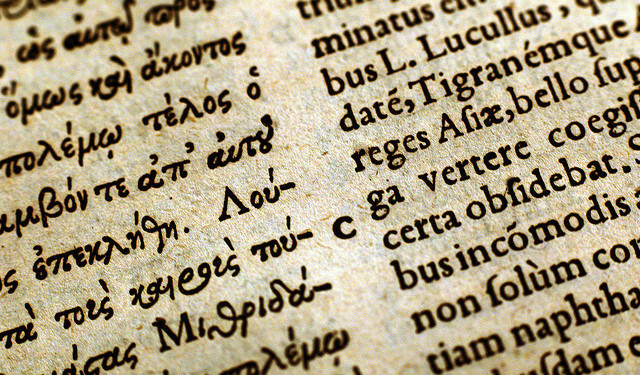 ὡς αὐτῷ πρὸς
ὅμως καὶ ἄκοντος
πολέμῳ τέλος ὁ
τε ἀπ' αὐτοῦ
ἐπεκλήθη. Λού-
τὰ τοὺς καιροὺς τού-
Μιθριδά-
πολέμῳ
C
minatus
bus L. Lucullus, q
daté, Tigranémque
reges Aſiæ, bello ſup
ga vertere coegi
certa obſidebat.
bus incómodis
non ſolùm con
tiam naphtha